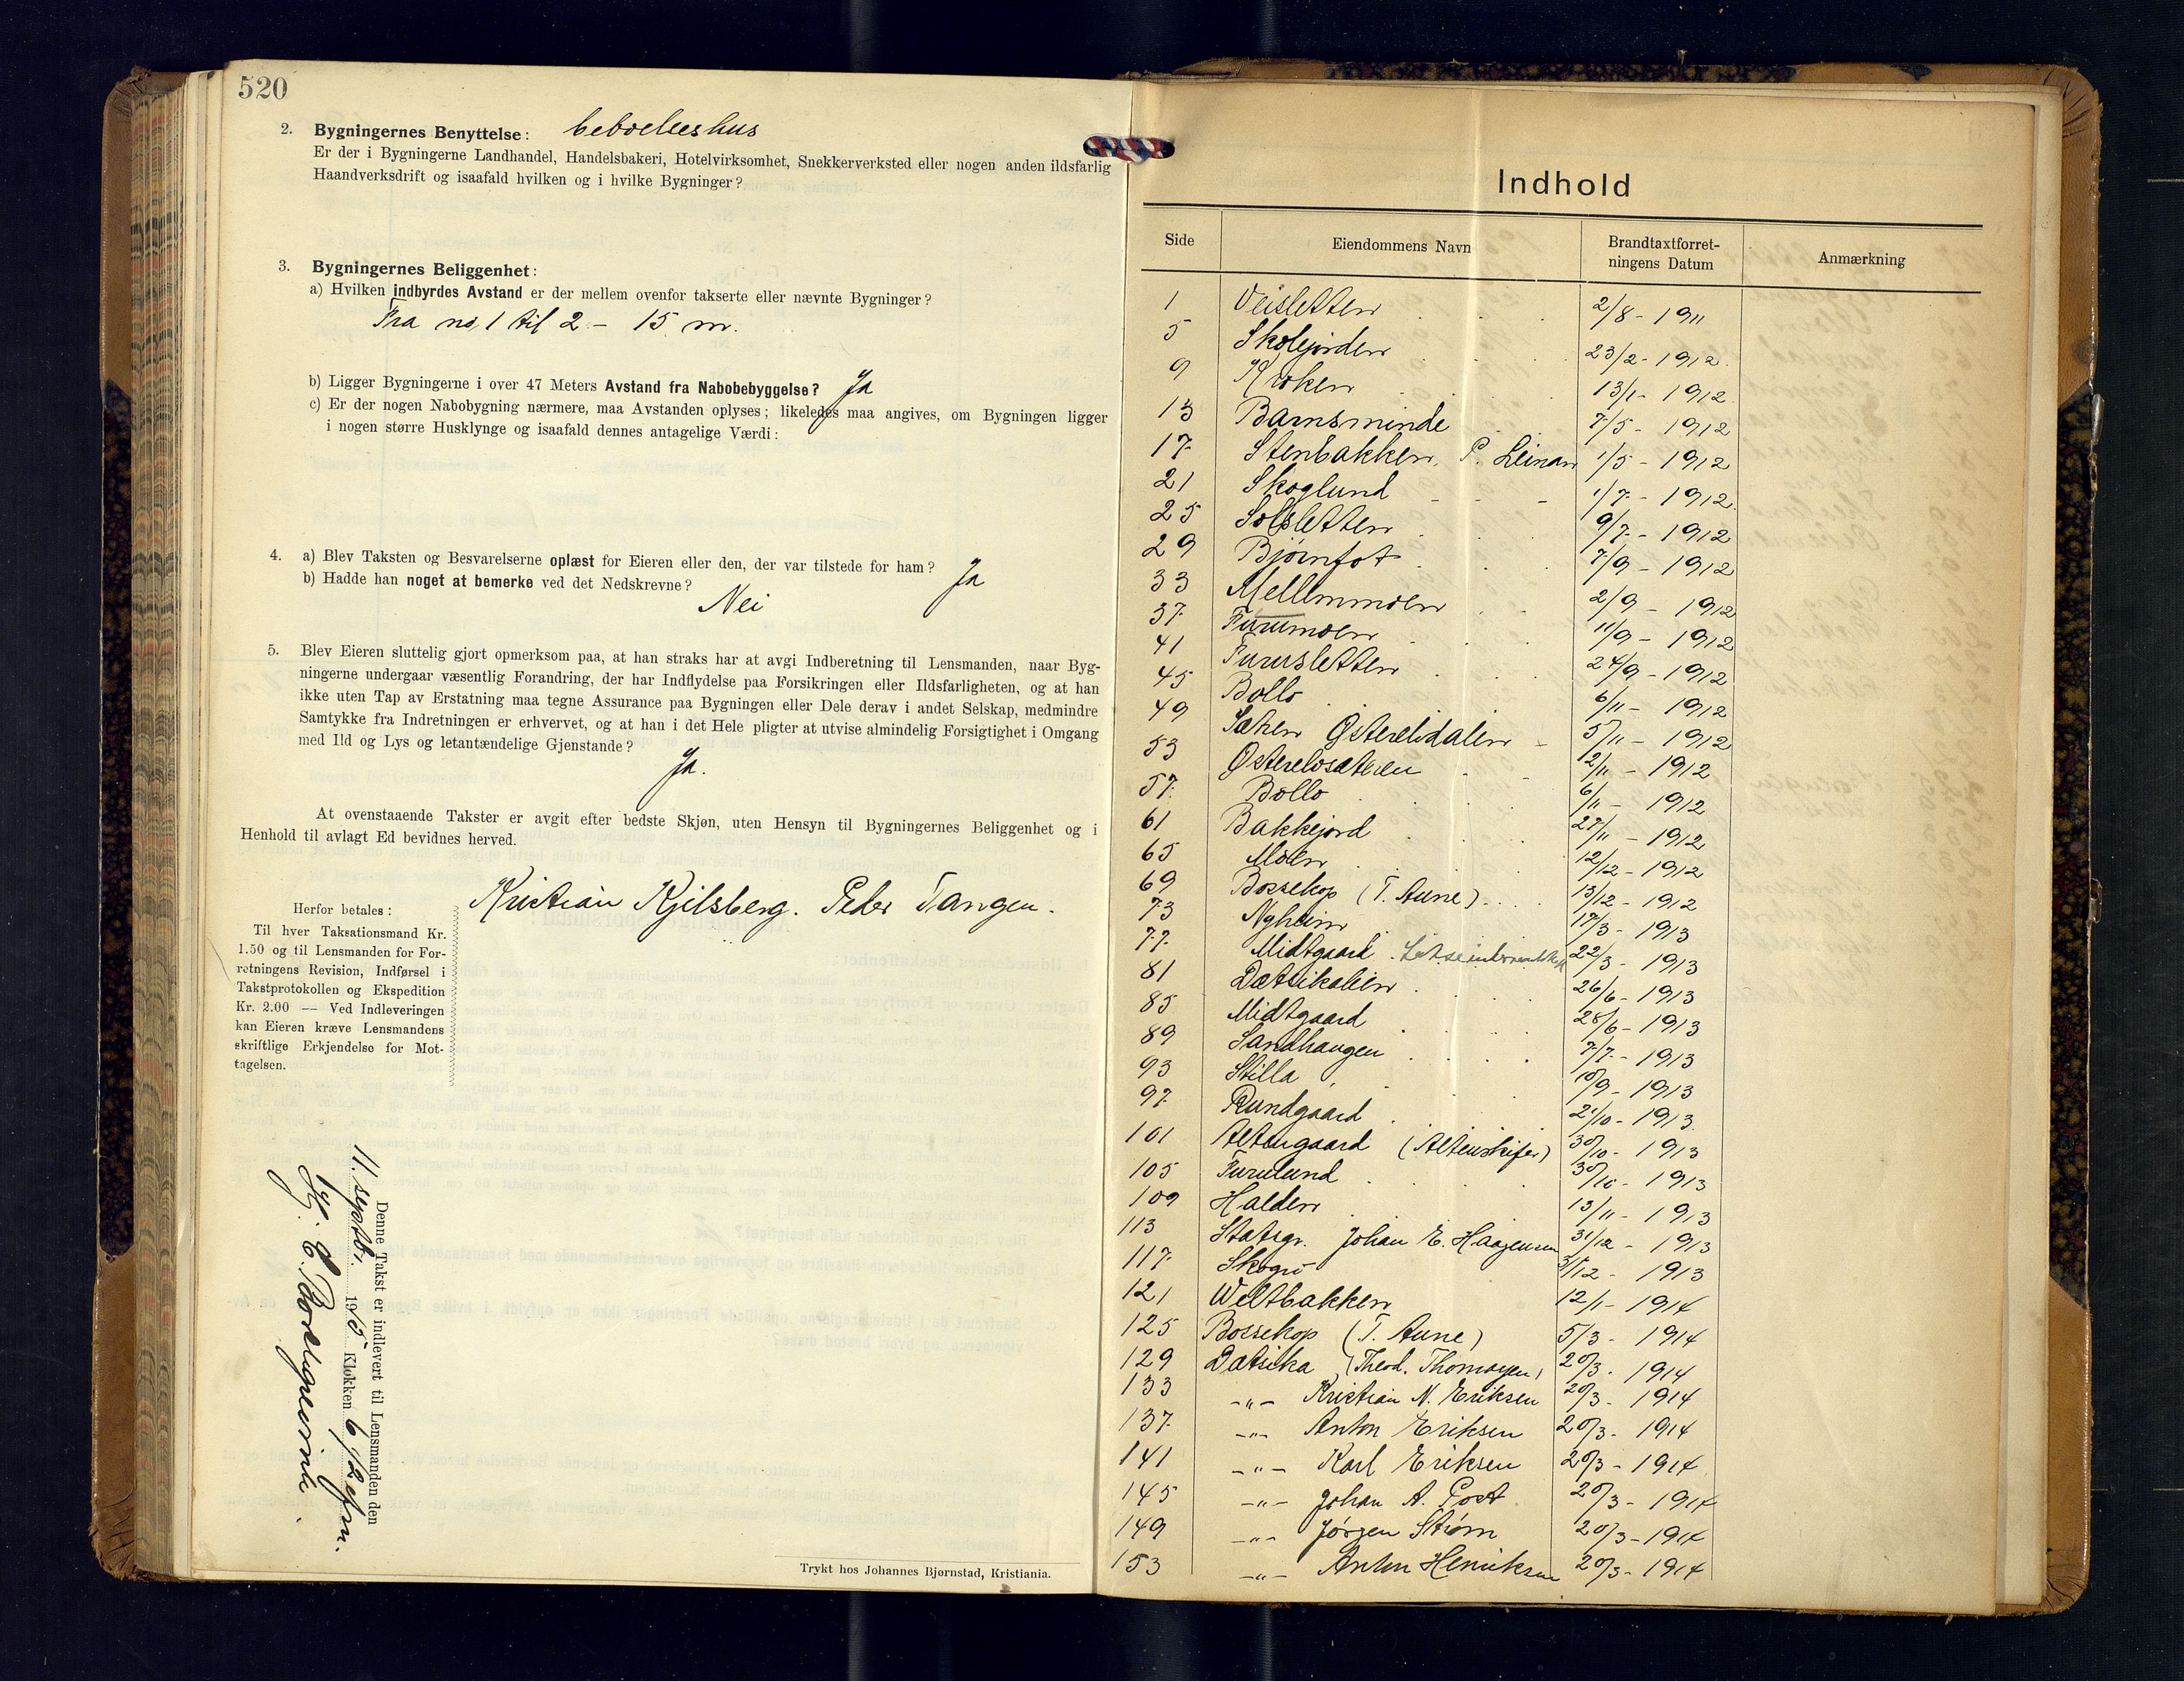 520
2. Bygningernes Benyttelse: beboelseshus
Er der i Bygningerne Landhandel, Handelsbakeri, Hotelvirksomhet, Snekkerverksted eller nogen anden ildsfarlig
Haandverksdrift og isaafald hvilken og i hvilke Bygninger?
3. Bygningernes Beliggenhet:
a) Hvilken indbyrdes Avstand er der mellem ovenfor takserte eller nævnte Bygninger?
Fra no 1 til 2 - 15 m.
b) Ligger Bygningerne i over 47 Meters Avstand fra Nabobebyggelse? Ja
c) Er der nogen Nabobygning nærmere, maa Avstanden oplyses; likeledes maa angives, om Bygningen ligger
i nogen større Husklynge og isaafald dennes antagelige Værdi:
4. a) Blev Taksten og Besvarelserne oplæst for Eieren eller den, der var tilstede for ham? Ja
b) Hadde han noget at bemerke ved det Nedskrevne?
Nei
5. Blev Eieren sluttelig gjort opmerksom paa, at han straks har at avgi Indberetning til Lensmanden, naar Byg-
ningerne undergaar væsentlig Forandring, der har Indflydelse paa Forsikringen eller Ildsfarligheten, og at han
ikke uten Tap av Erstatning maa tegne Assurance paa Bygningen eller Dele derav i andet Selskap, medmindre
Samtykke fra Indretningen er erhvervet, og at han i det Hele pligter at utvise almindelig Forsigtighet i Omgang
med Ild og Lys og letantændelige Gjenstande?
Ja.
At ovenstaaende Takster er avgit efter bedste Skjøn, uten Hensyn til Bygningernes Beliggenhet og i
Henhold til avlagt Ed bevidnes herved.
Kristian Kjilsberg. Peder Tangen.
Herfor betales:
Til hver Taksationsmand Kr.
1.50 og til Lensmanden for For-
retningens Revision, Indførsel i
Takstprotokollen og Ekspedition
Kr. 2.00 — Ved Indleveringen
kan Eieren kræve Lensmandens
skriftlige Erkjendelse for Mot-
tagelsen.
Denne Takst er indlevert til Lensmanden den
11. septbr. 1915 Klokken 6 1/2 efm.
Trykt hos Johannes Bjørnstad, Kristiania.
Indhold
Side Eiendommens Navn Brandtaxtforret- Anmærkning
ningens Datum
1 Veisletten 2/8 - 1911
5 Skolejorden 23/2 - 1912
9 Kroken 13/1 - 1912
13 Barnsminde 7/5 - 1912
17 Stenbakken, P. Leinan 1/5 - 1912
21 Skoglund 1/7 - 1912
25 Solsletten 9/7 - 1912
29 Bjørnfot 7/9 - 1912
33 Mellemmoen 2/9 - 1912
37 Furumoen 11/9 - 1912
41 Furusletten 24/9 - 1912
45 Bollo 6/11 - 1912
49 Østerelvdalen 5/11 - 1912
53 Østerelvsæteren 12/11 - 1912
57 Bollo 6/11 - 1912
61 Bakkejord 27/11 - 1912
65 Moen 12/12 - 1912
69 Bossekop (T. Aune) 13/12 - 1912
73 Nyheim 17/3 - 1913
77 Midtgaard 22/3 - 1913
81 Dætsikalien 26/6 - 1913
85 Midtgaard 28/6 - 1913
89 Sandhaugen 7/7 - 1913
93 Stilla 10/9 - 1913
97 Rundgaard 21/10 - 1913
101 Altengaard (Altenskifer) 30/10 - 1913
105 Furulund 30/10 - 1913
109 Halden 13/11 - 1913
113 Statsgr. Johan E. Haagensen 31/12 - 1913
117 Skogro 31/12 - 1913
121 Weltbakken 12/1 - 1914
125 Bossekop (T. Aune) 5/3 - 1914
129 Dætsika (Theod. Thomasen) 20/3 - 1914
133 -"- Kristian N. Eriksen 20/3 - 1914
137 -"- Anton Eriksen 20/3 - 1914
141 -"- Karl Eriksen 20/3 - 1914
145 -"- Johan A. Post 20/3 - 1914
149 -"- Jørgen Strøm 20/3 - 1914
153 -"- Anton Henriksen 20/3 - 1914